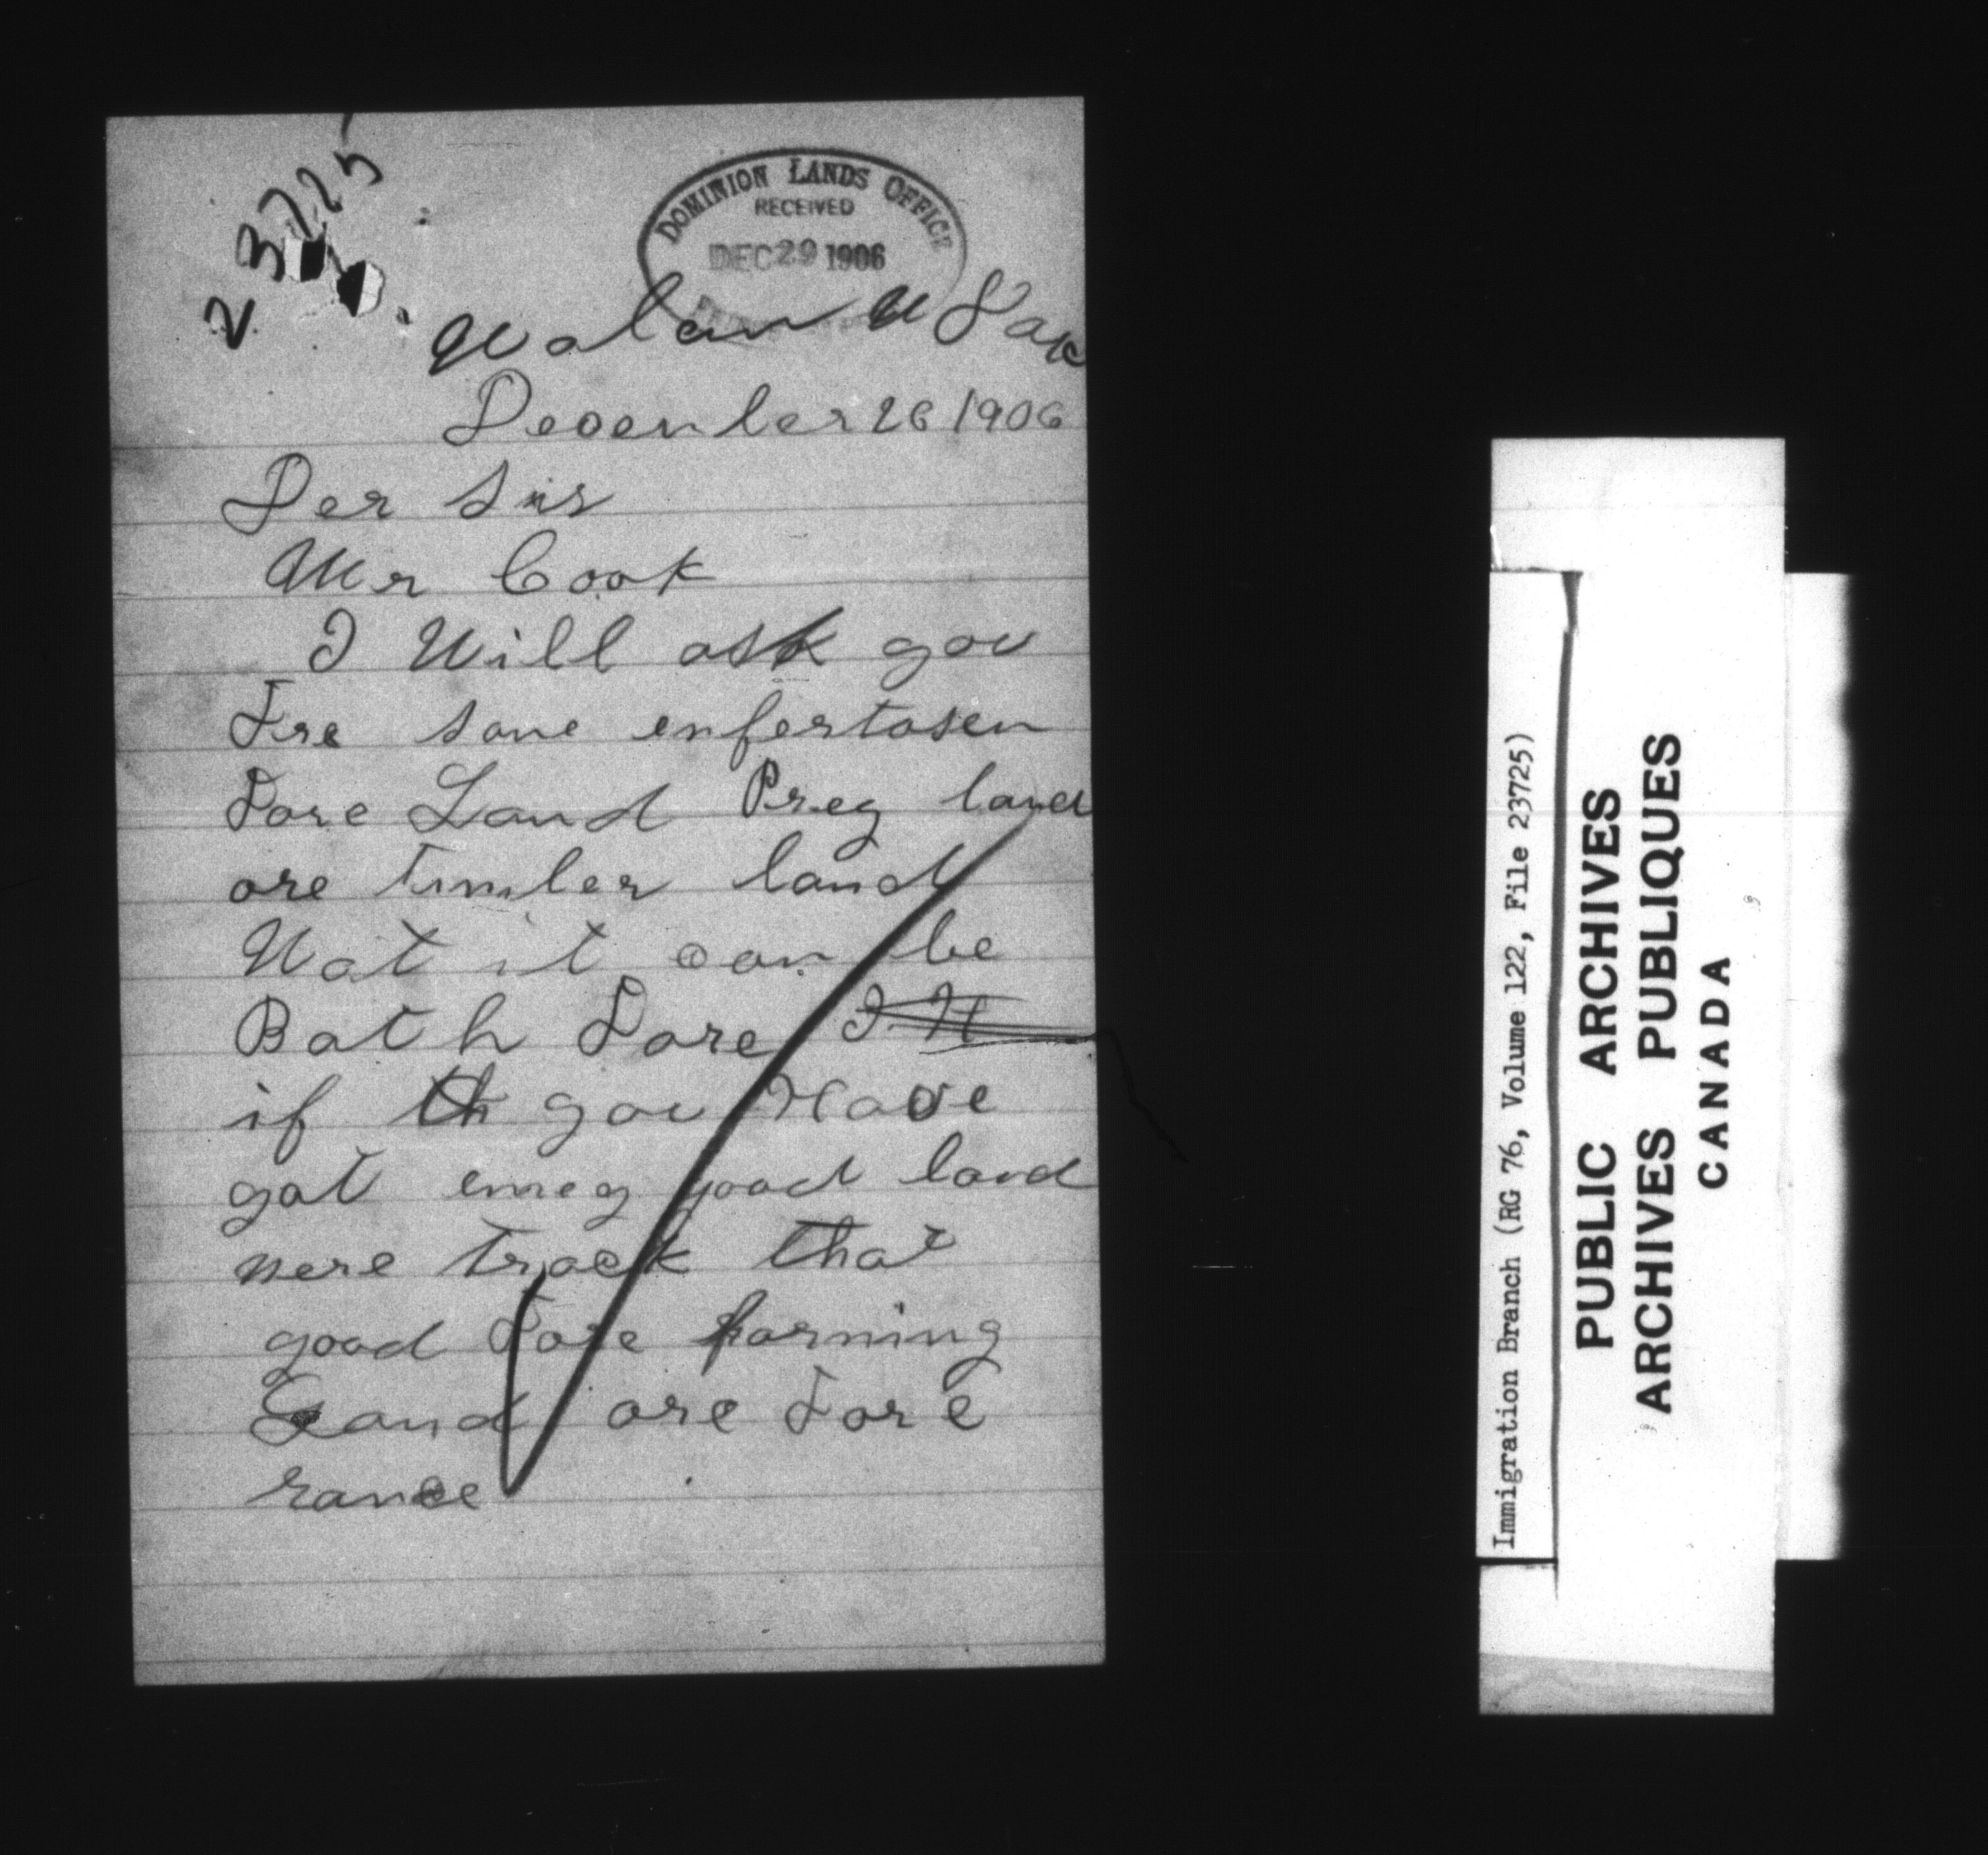 23725
DOMINION LANDS OFFICE
RECEIVED
DEC 29 1906
Walam N Dak
December 26 1906
Der Sirs
Mr Cook
I Will ask you
Fre some enfertasen
Fore Land Prey land
ore timber land
Wat it can be
Bat h Fore I H
if th you Have
gat enney good land
nere track that
good Fore farming
Land ore Fore
rance
Immigration Branch (RG 76, Volume 122, File 23725)
PUBLIC ARCHIVES
ARCHIVES PUBLIQUES
CANADA